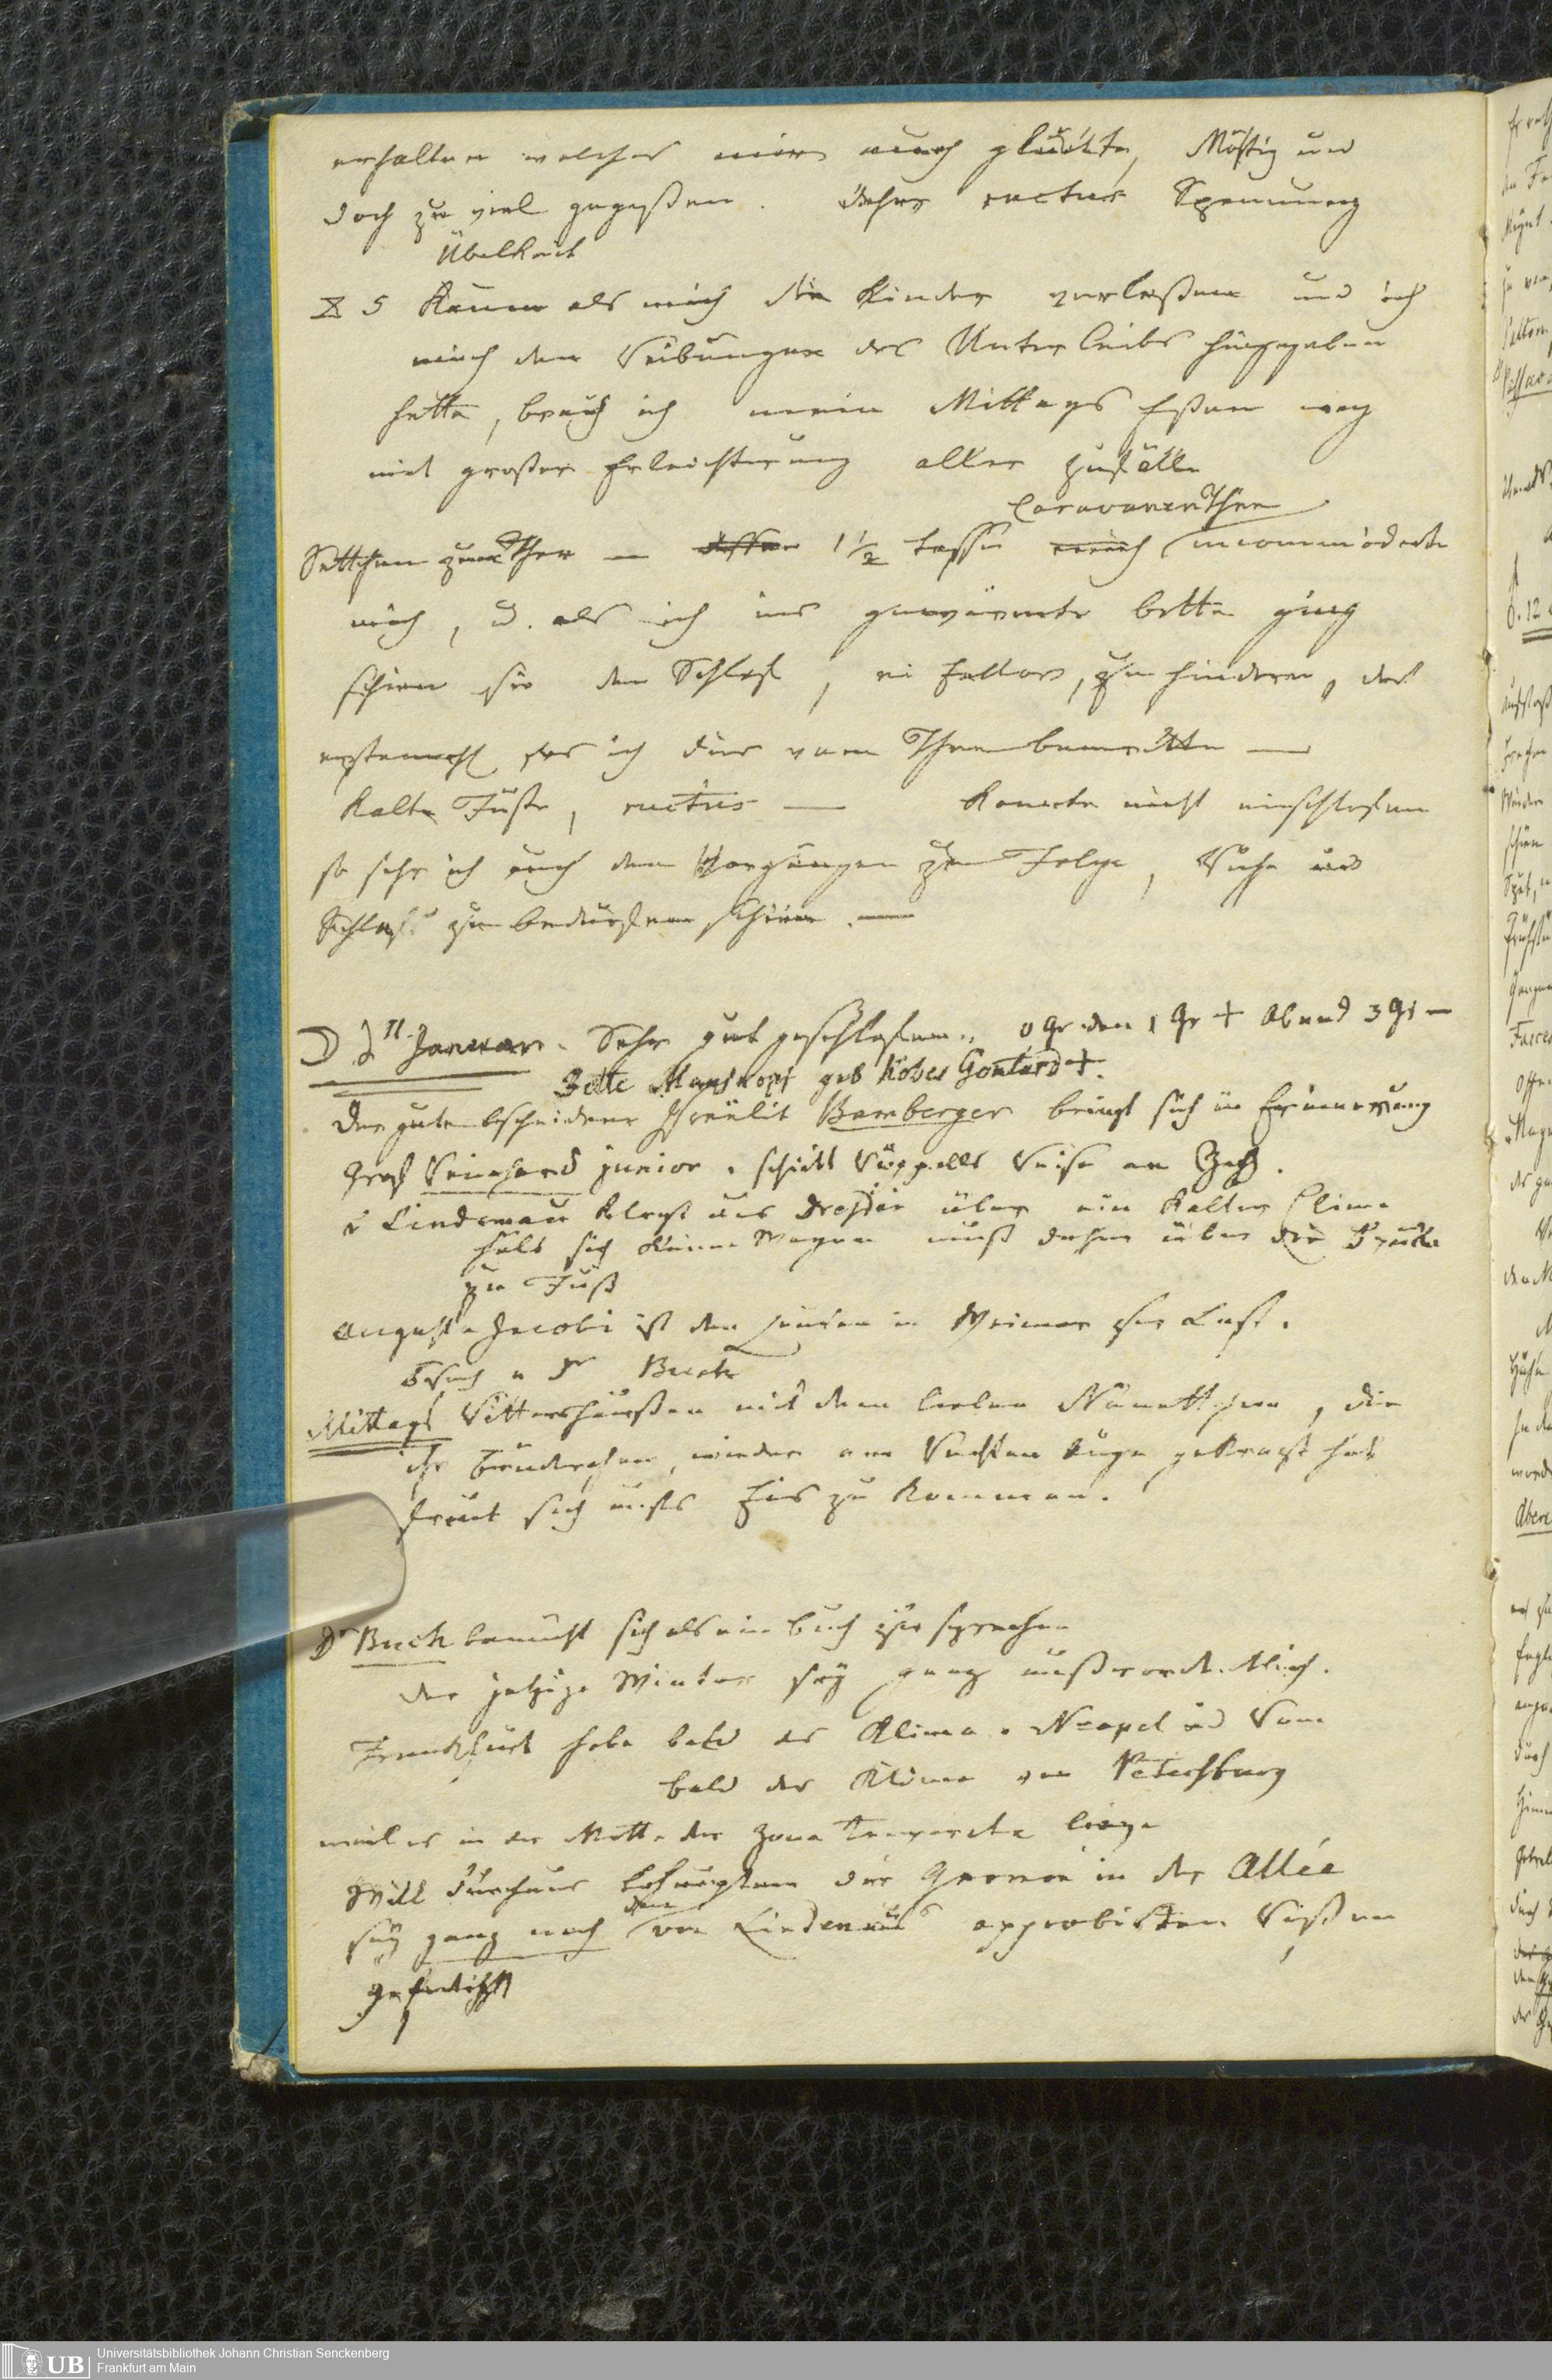 erhalten welches mir auch glückte, Mäßig und
doch zu viel gegeßen. Daher ructus Spannung
Übelkeit
5 Kaum als mich die Kinder verlaßen und ich
mich den Reibungen des Unterleibs hingegeben
hatte, brach ich mein Mittags Eßen weg
mit großer Erleichterung aller Zufälle
Caravanen Thee
Settchen zum Thee — 1 1/2 Tassen incommodirte
mich, u. als ich ins gewärmte Bette ging
schien er den Schlaf, zu hindern, das
erstemahl das ich dies vom Thee bemerkte —
Kalte Füße, ructus — Konnte nicht einschlafen
so sehr ich auch dem Vorgängen zu Folge, Ruhe und
Schlafs zu bedürfen schien. —
Januar. Sehr gut geschlafen. 1 Gr + Abend 3 Gr —
Jette Manskopf geb Gontard +.
Der gute bescheidene Israelit Bamberger bringt sich in Erinnerung
Graf Reinhard junior. schickt Rüppells Reise an
v Lindenau klagt aus Dresden über ein kaltes Clima
hält sich keine Wagen muß daher über die Brücke
zu Fuß
Auguste Jacobi ist den Leuten in Weimar zur Last.
Besuch v Dr Buek
Mittags Rittershaußen mit dem lieben Nanettchen, die
ihr Brüderchen, wieder am Rechten Auge gekratzt hat
freut sich aufs Eis zu kommen.
Dr Buek bemüht sich als ein Buch zu sprechen
der jetzige Winter sey ganz außerordentlich.
Frankfurt habe bald das Klima v Neapel und Rom
bald das Klima von Petersburg
weil es in der Mitte der Zona Temperata liege
Will durchaus behaupten die in der Allée
sey ganz nach den von Lindenau approbirten Rißen
gefertigt
Universitätsbibliothek Johann Christian Senckenberg
Frankfurt am Main
UB